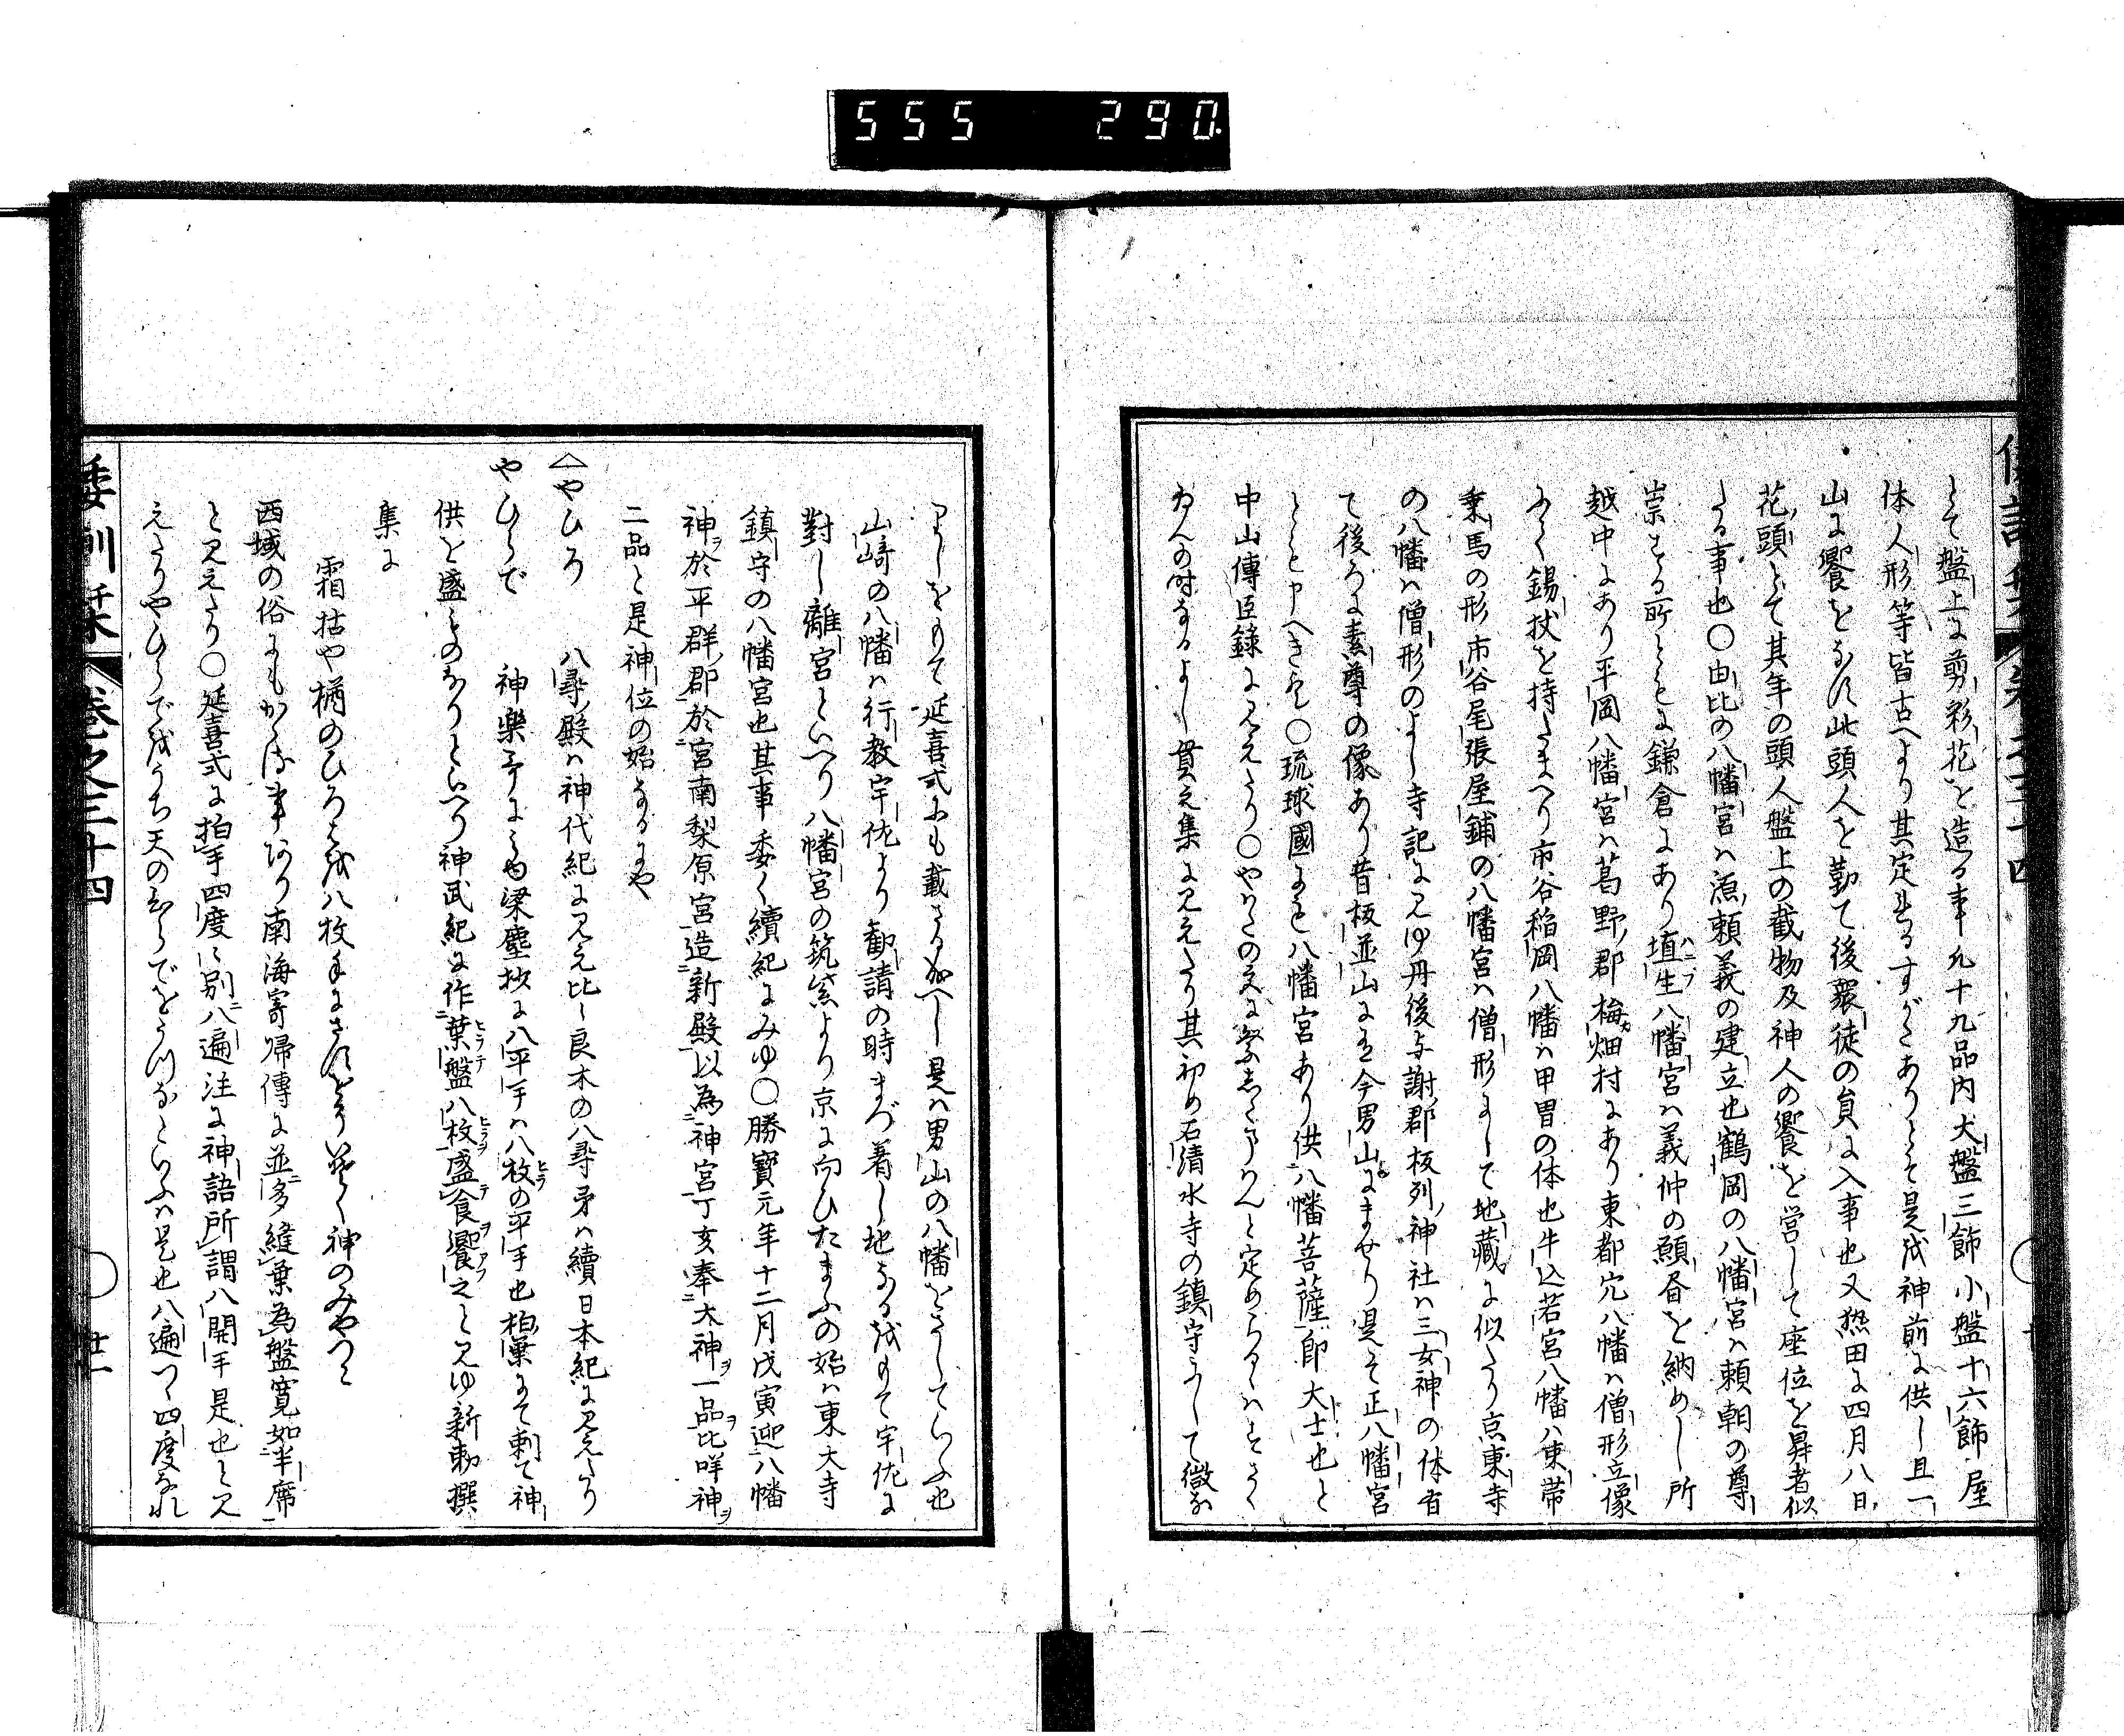 555 290
とて盤上に剪彩花を造る事凡十九品内大盤三飾小盤十六飾屋
体人形等皆古へより其定まるすがたありとそ是を神前に供し且一
山に饗をなす此頭人を勤て後衆徒の員に入事也又熱田に四月八日
花頭とて其年の頭人盤上の截物及神人の饗を営して座位を昇者似
たる事也〇由比の八幡宮は源頼義の建立也鶴岡の八幡宮は頼朝の尊
崇する所ともに鎌倉にあり埴生八幡宮は義仲の願書を納めし所
越中にあり平岡八幡宮は葛野郡梅畑村にあり東都穴八幡は僧形立像
にて錫杖を持たまへり市谷稲岡八幡は甲冑の体也牛込若宮八幡は束帯
乗馬の形市谷尾張屋鋪の八幡宮は僧形にして地蔵に似たり京東寺
の八幡は僧形のよし寺記に見ゆ丹後与謝郡板列神社は三女神の体有
て後ろに素尊の像あり昔板並山に在今男山にませり是そ正八幡宮
とも申へきを〇琉球國にも八幡宮あり供八幡菩薩即大士也と
中山傳信録に見えたり〇やはたの文に
の時なるよし貫之集に見えたり其初め石清水寺の鎮守にして微な
よしをもて延喜式にも載さるなへし是は男山の八幡をさしていふ也
山﨑の八幡は行教宇佐より勧請の時まづ着し地なるをもて宇佐に
對し離宮といへり八幡宮の筑紫より京に向ひたまふの始は東大寺
鎮守の八幡宮也其事委く續紀にみゆ〇勝寳元年十二月戊寅迎八幡
神於平群郡於宮南梨原宮造新殿以為神宮丁亥奉大神一品比咩神
二品と是神位の始なるにや
△やひろ　八尋殿は神代紀に見え比〻良木の八尋矛は續日本紀に見えたり
やひらで　神楽哥にみゆ梁塵抄に八平手は八枚の平手也柏葉にて刺て神
供を盛ものなりといへり神武紀に作葉盤八枚盛食饗之と見ゆ新勅撰
集に
霜枯や楢のひろはを八枚手にさすとそいそく神のみやつこ
西域の俗にもかゝる事あり南海寄帰傳に並多縫葉為盤寛如半席
と見えたり〇延喜式に拍手四度〻別八遍注に神語所謂八開手是也と見
えたりやひらでをうち天のひらでをうつなといふは是也八遍つゝ四度なれ
倭訓栞　巻之三十四　廿一